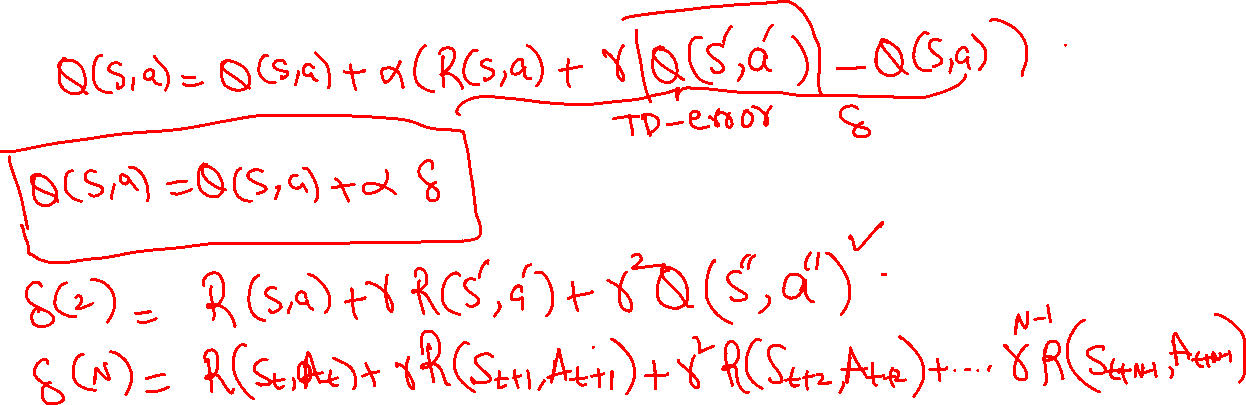 Q(S,a) = Q(S,a) + α(R(S,a) + γ Q(S',a') - Q(S,a))
TD-error δ
Q(S,a) = Q(S,a) + α δ
δ(2) = R(S,a) + γ R(S',a') + γ² Q(S'',a'') ✓
δ(N) = R(St,At) + γ R(St+1,At+1) + γ² R(St+2,At+2) + .... γ^N-1 R(St+N-1,At+N-1)